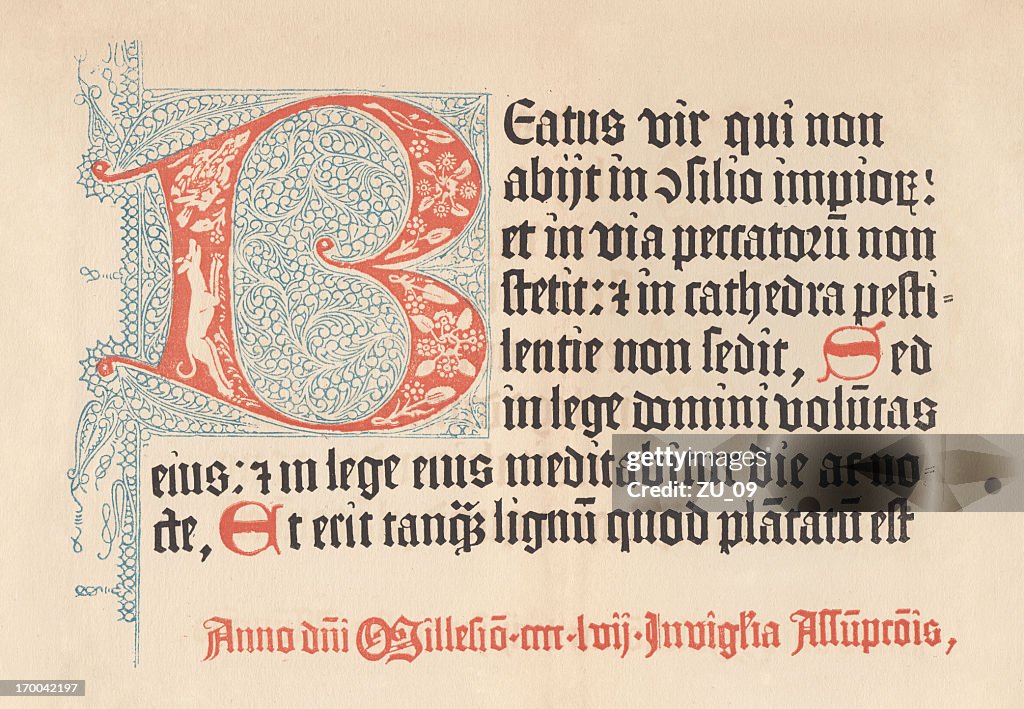 BEatus vir qui non
abijt in ꝯsilio impioꝝ:
et in via peccatorū non
stetit: ⁊ in cathedra pesti=
lentie non sedit, Sed
in lege domini volūtas
eius: ⁊ in lege eius meditabitur die ac no
cte, Et erit tanqꝫ lignū quod plātatū est
Anno dñi Millesiō·cccc·lvij·In vigĺia Assūpcōis,
gettyimages
ZU_09
170042197